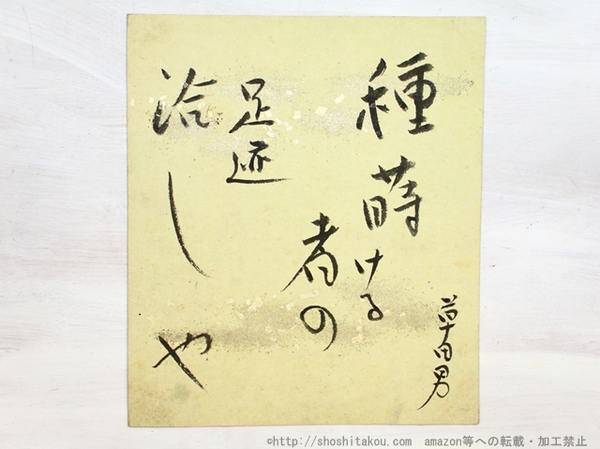 種蒔ける
者の
足迹
洽しや
草田男
©http://shoshitakou.com amazon等への転載・加工禁止